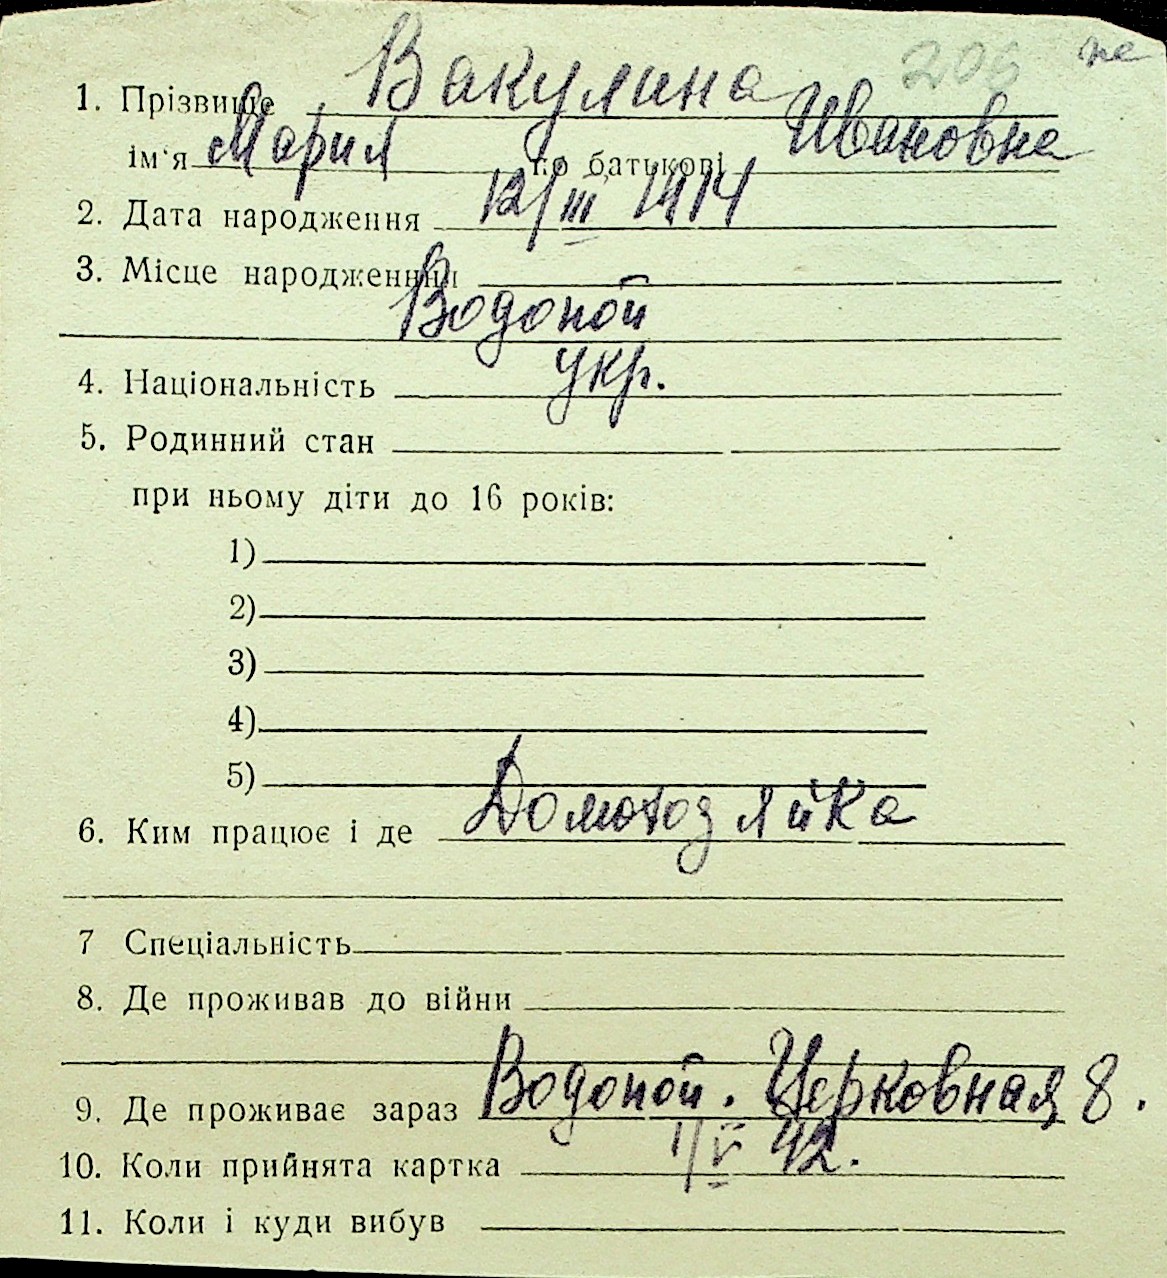 206 не
1. Прізвище Вакулина
ім'я Мария по батькові Ивановна
2. Дата народження 12/III 1914
3. Місце народження
Водопой
4. Національність укр.
5. Родинний стан
при ньому діти до 16 років:
1)
2)
3)
4)
5)
6. Ким працює і де Домохозяйка
7 Спеціальність
8. Де проживав до війни
9. Де проживає зараз Водопой. Церковная 8.
10. Коли прийнята картка 1/V 42.
11. Коли і куди вибув